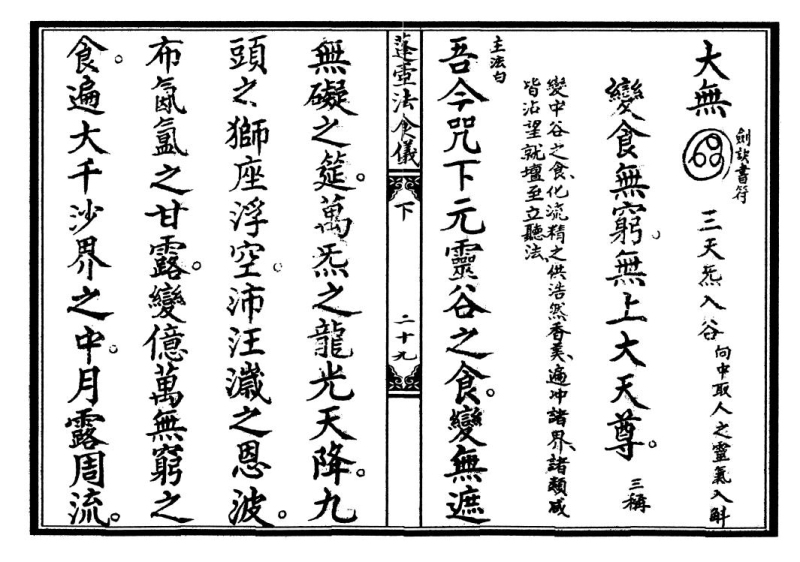 大無
劍訣書符
三天炁入谷
向中取人之靈氣入斛
變食無窮。無上大天尊。三稱
變中谷之食、化流精之供浩然香美、遍沖諸界、諸類咸
皆沾望就壇至立聽法
主法白
吾今咒下元靈谷之食。變無遮
蓬壺法食儀
下
二十九
無礙之筵。萬炁之龍光天降。九
頭之獅座浮空。沛汪濊之恩波。
布氤氳之甘露。變億萬無窮之
食。遍大千沙界之中。月露周流。